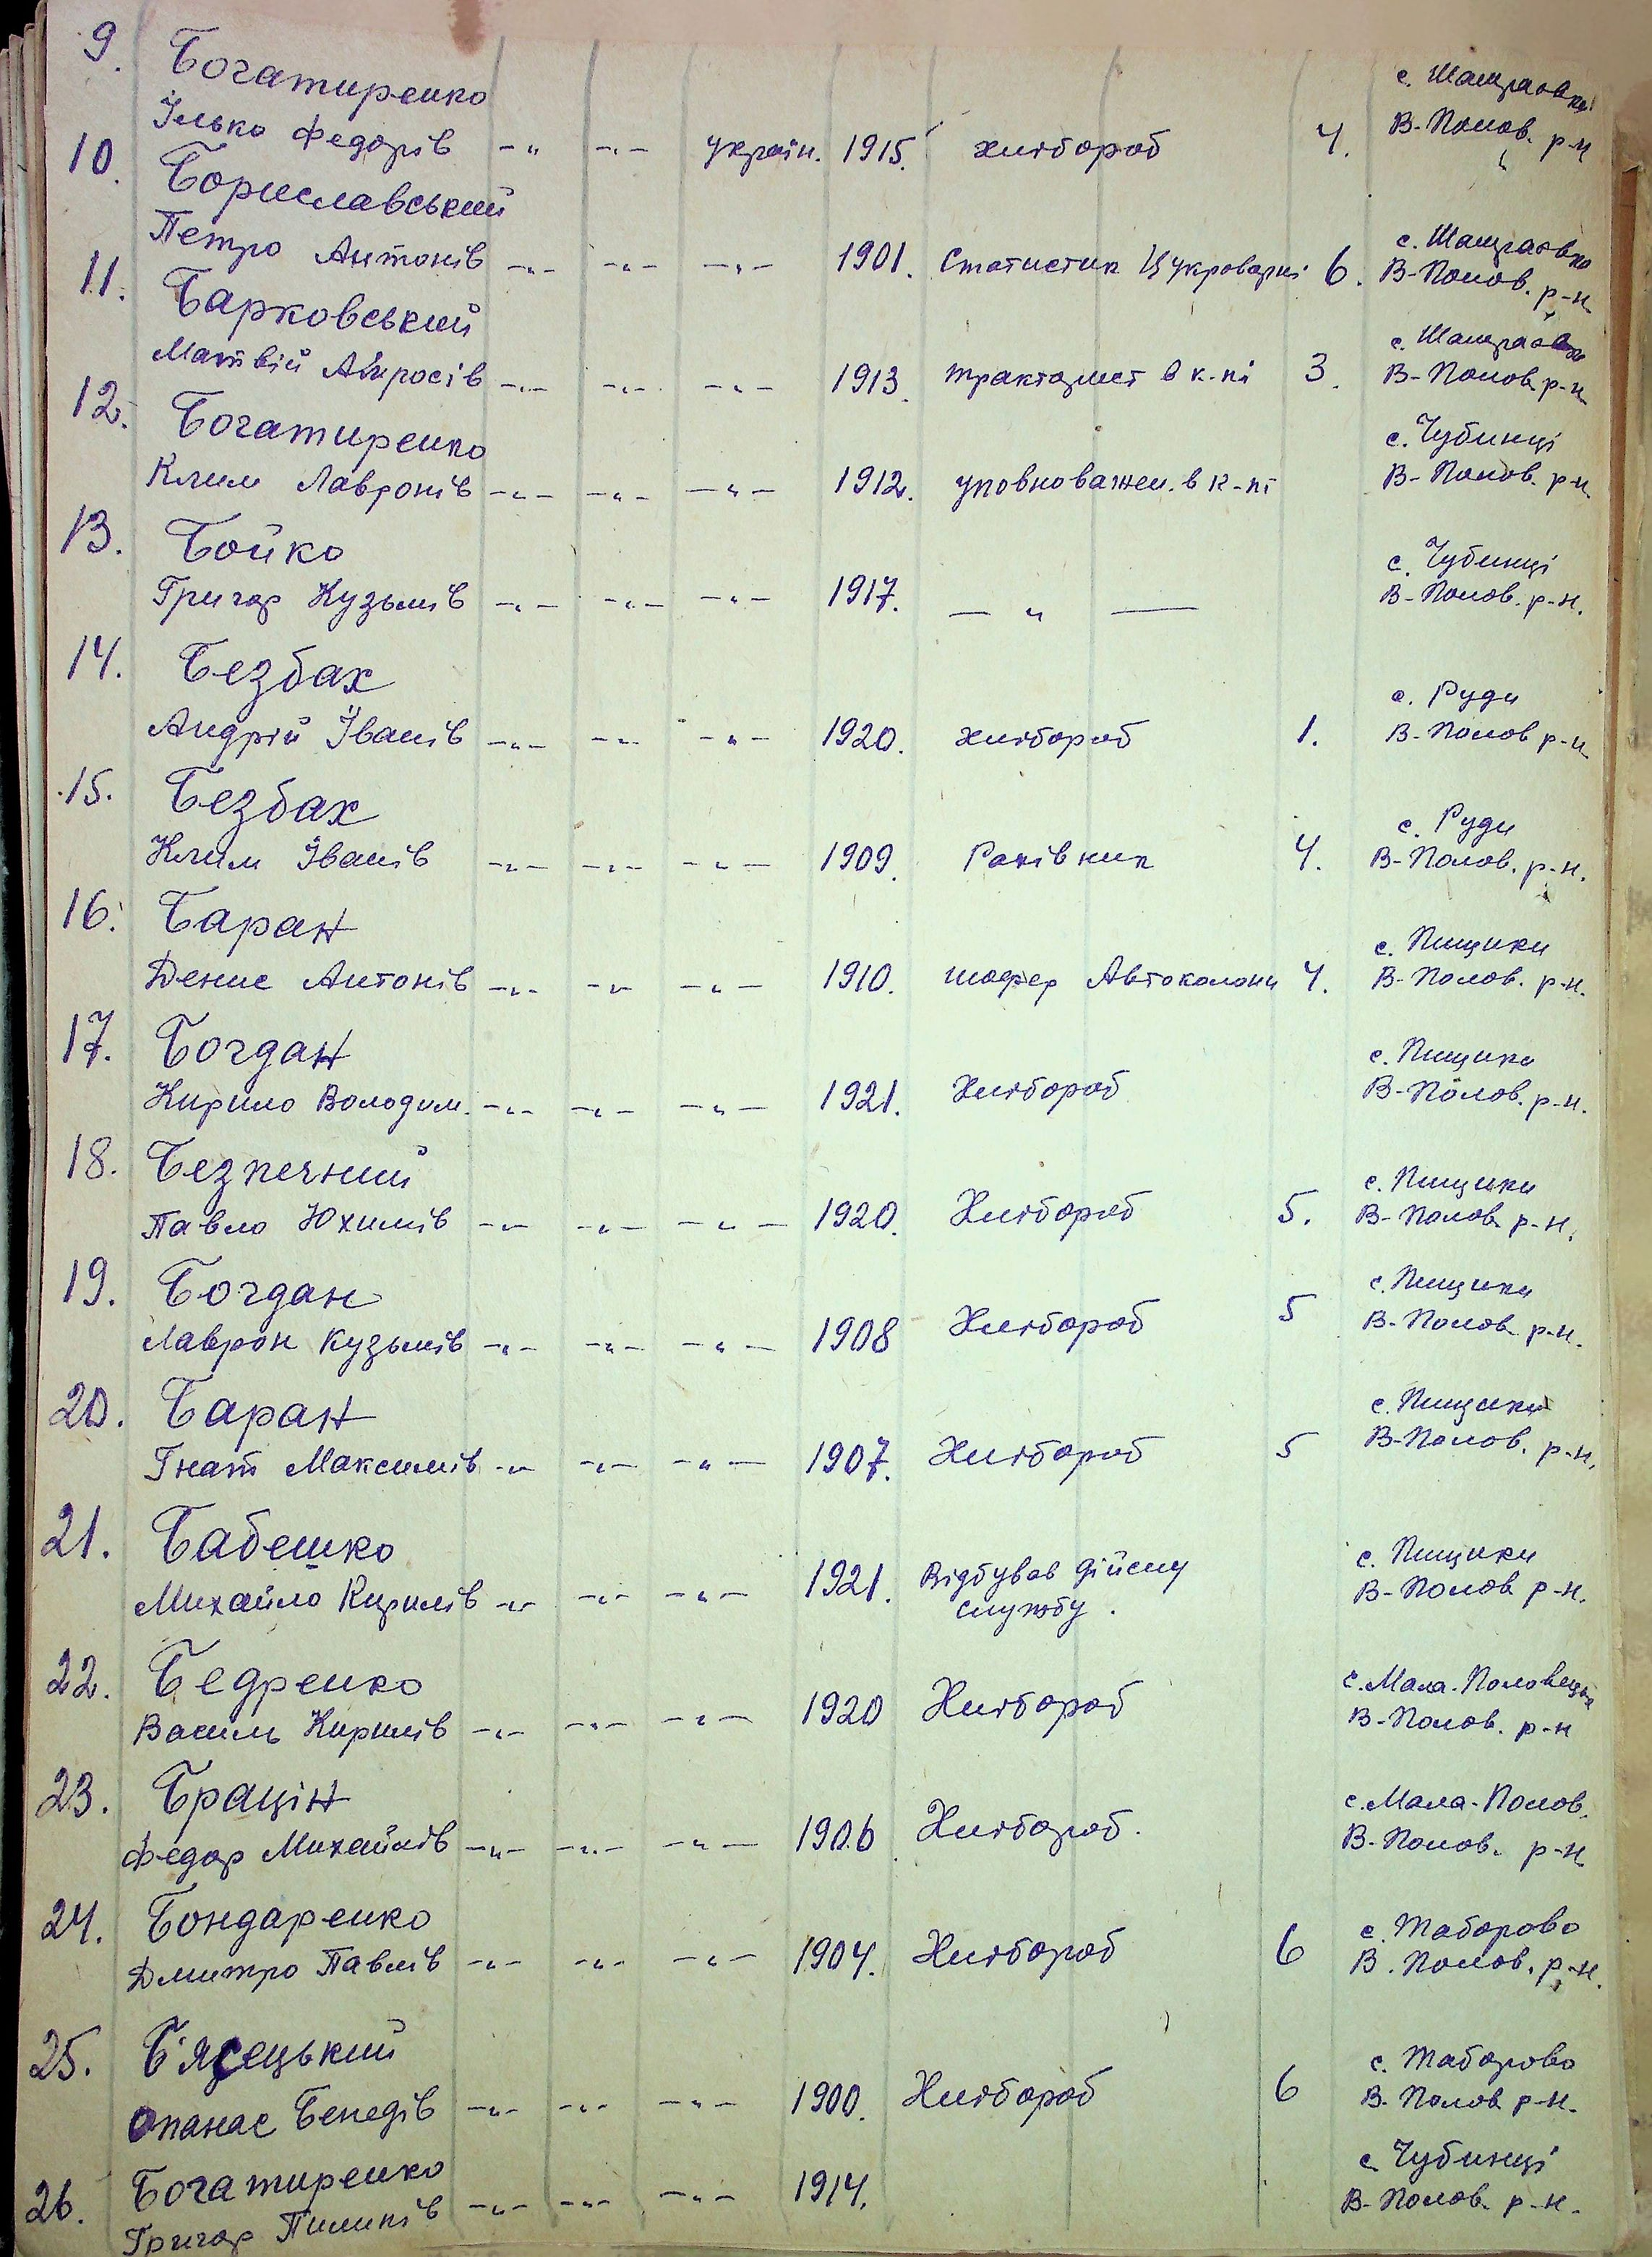 9. Богатиренко с. Шамраєвка
Ілько Федорів -„- -„- україн. 1915. хлібороб 4. В-Полов. р-н
10. Бориславський с. Шамраєвка
Петро Антонів -„- -„- -„- 1901. Статистик Цукроварні 6. В-Полов. р-н.
11. Барковський с. Шамраєвка
Матвій Амросів -„- -„- -„- 1913. тракторист в к-пі 3. В-Полов. р-н.
12. Богатиренко с. Чубинці
Клим Лавронів -„- -„- -„- 1912. уповноважен. в к-пі В-Полов. р-н.
13. Бойко с. Чубинці
Григор Кузьмів -„- -„- -„- 1917. — „ — В-Полов. р-н.
14. Безбах с. Руди
Андрій Іванів -„- -„- -„- 1920. хлібороб 1. В-Полов р-н
15. Безбах с. Руди
Клим Іванів -„- -„- -„- 1909. Рахівник 4. В-Полов. р-н.
16. Баран с. Пищики
Денис Антонів -„- -„- -„- 1910. шофер Автоколони 4. В-Полов. р-н.
17. Богдан с. Пищики
Кирило Володим. -„- -„- -„- 1921. Хлібороб В-Полов. р-н.
18. Безпечний с. Пищики
Павло Юхимів -„- -„- -„- 1920. Хлібороб 5. В-Полов. р-н.
19. Богдан с. Пищики
Лаврон Кузьмів -„- -„- -„- 1908 Хлібороб 5 В-Полов. р-н.
20. Баран с. Пищики
Гнат Максимів -„- -„- -„- 1907. Хлібороб 5 В-Полов. р-н.
21. Бабешко с. Пищики
Михайло Кирилів -„- -„- -„- 1921. Відбував дійсну В-Полов р-н.
службу.
22. Бедренко с. Мала-Половецька
Василь Кирилів -„- -„- -„- 1920 Хлібороб В-Полов. р-н
23. Брацін с. Мала-Полов.
Федор Михайлів -„- -„- -„- 1906 Хлібороб. В-Полов. р-н
24. Бондаренко с. Таборово
Дмитро Павлів -„- -„- -„- 1904. Хлібороб 6 В. Полов. р-н.
25. Б'ясецький с. Таборово
Опанас Бенедів -„- -„- -„- 1900. Хлібороб 6 В. Полов р-н.
26. Богатиренко с. Чубинці
Григор Пилипів -„- -„- -„- 1914. В-Полов. р-н.